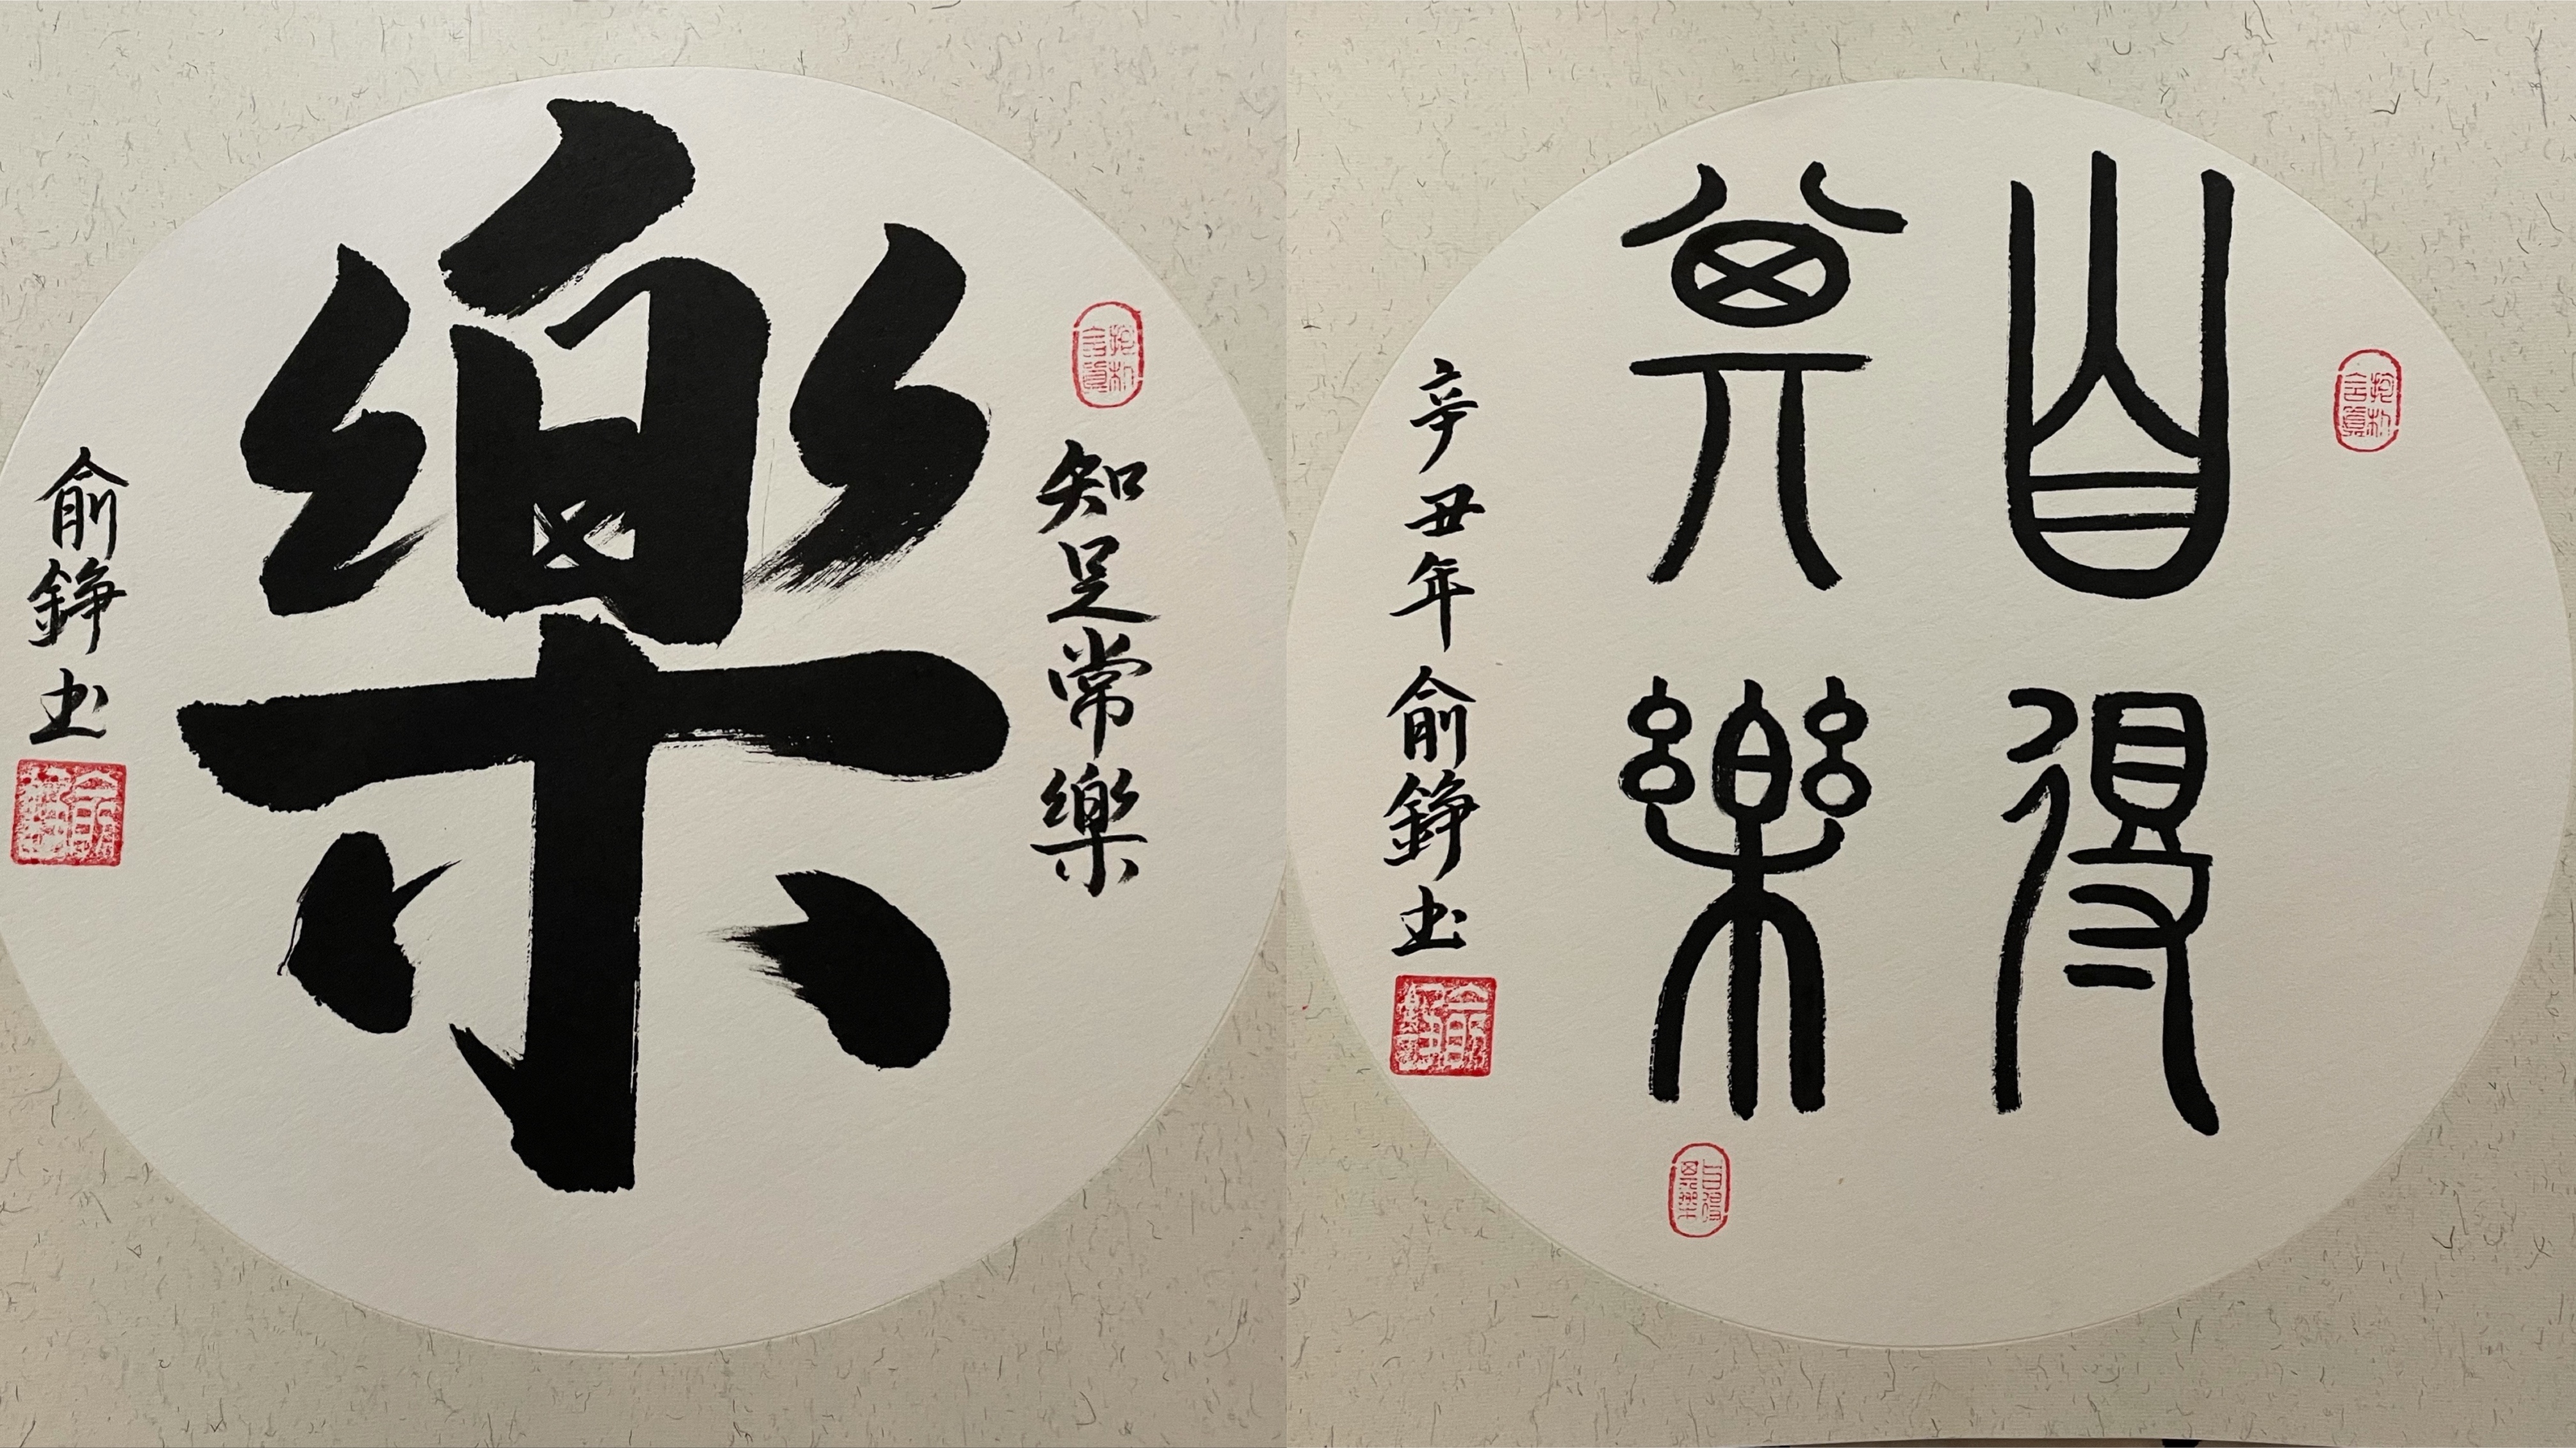 抱朴
含真
知足常樂
樂
俞錚书
抱朴
含真
自得
其樂
自得
其樂
辛丑年俞錚书